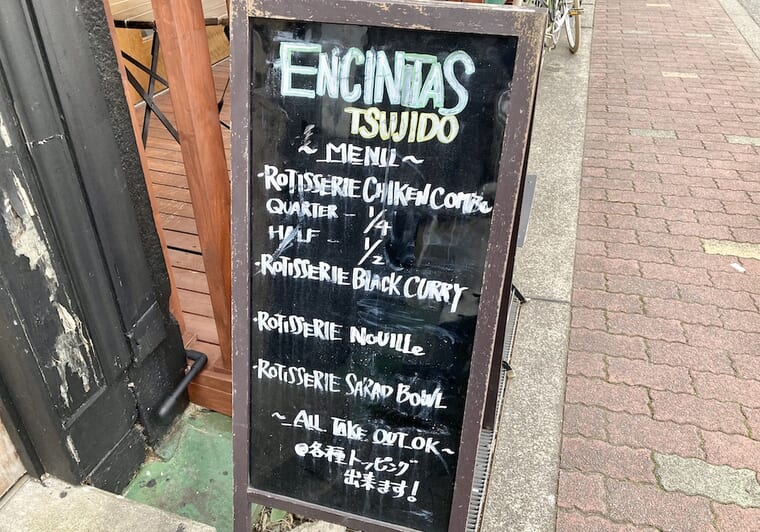 ENCINITAS
TSUJIDO
~ MENU ~
・ROTISSERIE CHIKEN COMBO
QUARTER - 1/4
HALF - 1/2
・ROTISSERIE BLACK CURRY
・ROTISSERIE NOUILLe
・ROTISSERIE SARAD BOWL
~ ALL TAKE OUT OK ~
@各種トッピング
出来ます!